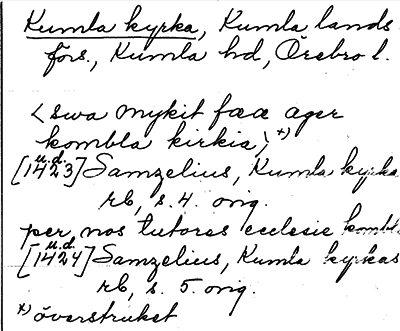 Kumla kyrka, Kumla lands
förs., Kumla hd, Örebro l.
<swa mykit fææ ager
kombla kirkia> x)
[1423] u.d. Samzelius, Kumla kyrka
rb, s. 4. orig.
per nos tutores ecclesie kombl
[1424] u.d. Samzelius, Kumla kyrkas
rb, s. 5. orig.
x) överstruket